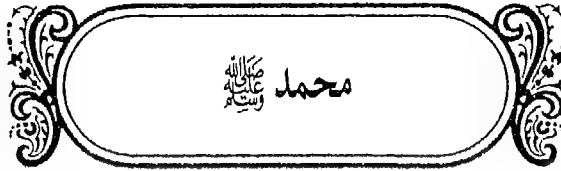 محمد ﷺ